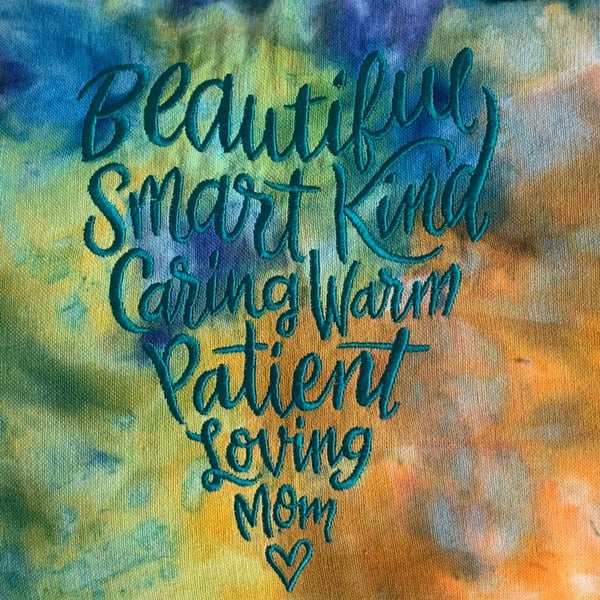 Beautiful
Smart Kind
Caring Warm
Patient
Loving
Mom